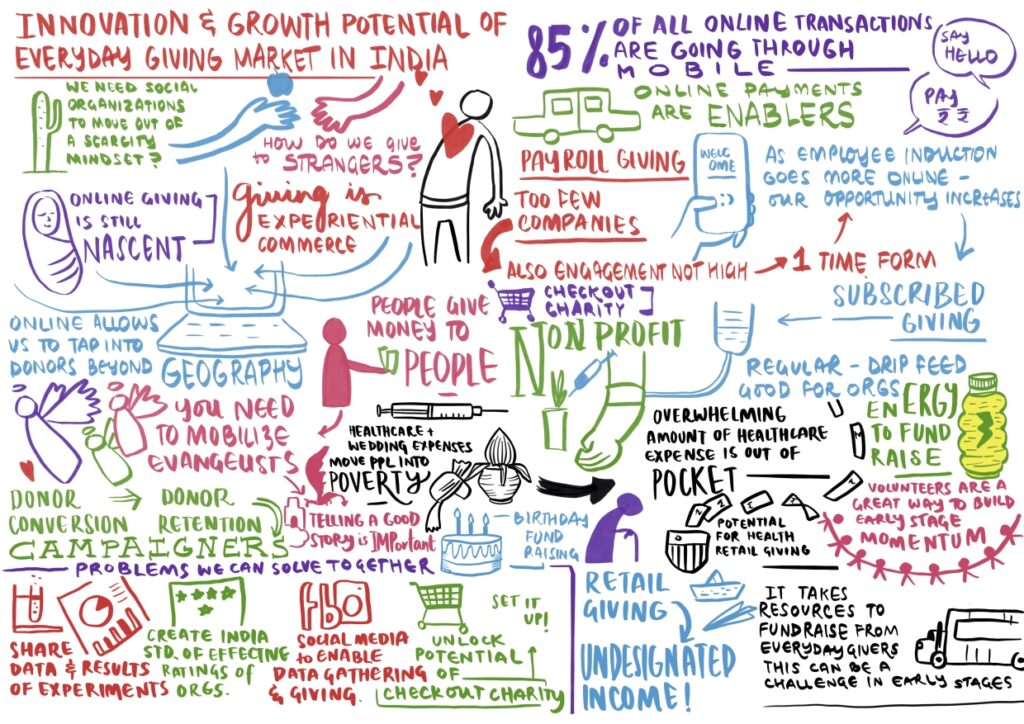 INNOVATION & GROWTH POTENTIAL OF
EVERYDAY GIVING MARKET IN INDIA
WE NEED SOCIAL
ORGANIZATIONS
TO MOVE OUT OF
A SCARCITY
MINDSET?
HOW DO WE GIVE
to STRANGERS?
ONLINE GIVING
IS STILL
NASCENT
giving is
EXPERIENTIAL
COMMERCE
ONLINE ALLOWS
US TO TAP INTO
DONORS BEYOND
GEOGRAPHY
PEOPLE GIVE
MONEY TO
PEOPLE
YOU NEED
TO MOBILIZE
EVANGELISTS
HEALTHCARE +
WEDDING EXPENSES
MOVE PPL INTO
POVERTY
DONOR
CONVERSION
DONOR
RETENTION
CAMPAIGNERS
TELLING A GOOD
STORY IS IMPORTANT
BIRTHDAY
FUND
RAISING
85% OF ALL ONLINE TRANSACTIONS
ARE GOING THROUGH
MOBILE
SAY
HELLO
PAY
₹ ₹
ONLINE PAYMENTS
ARE ENABLERS
PAYROLL GIVING
TOO FEW
COMPANIES
WELC
OME
AS EMPLOYEE INDUCTION
GOES MORE ONLINE -
OUR OPPORTUNITY INCREASES
ALSO ENGAGEMENT NOT HIGH
1 TIME FORM
CHECKOUT
CHARITY
SUBSCRIBED
GIVING
NON PROFIT
REGULAR - DRIP FEED
GOOD FOR ORGS
OVERWHELMING
AMOUNT OF HEALTHCARE
EXPENSE IS OUT OF
POCKET
ENERGY
TO FUND
RAISE
POTENTIAL
FOR HEALTH
RETAIL GIVING
VOLUNTEERS ARE A
GREAT WAY TO BUILD
EARLY STAGE
MOMENTUM
PROBLEMS WE CAN SOLVE TOGETHER
SHARE
DATA & RESULTS
OF EXPERIMENTS
CREATE INDIA
STD. OF EFFECTING
RATINGS OF
ORGS.
SOCIAL MEDIA
to ENABLE
DATA GATHERING
& GIVING.
SET IT
UP!
UNLOCK
POTENTIAL
OF
CHECKOUT CHARITY
RETAIL
GIVING
UNDESIGNATED
INCOME!
IT TAKES
RESOURCES TO
FUNDRAISE FROM
EVERYDAY GIVERS
THIS CAN BE A
CHALLENGE IN EARLY STAGES